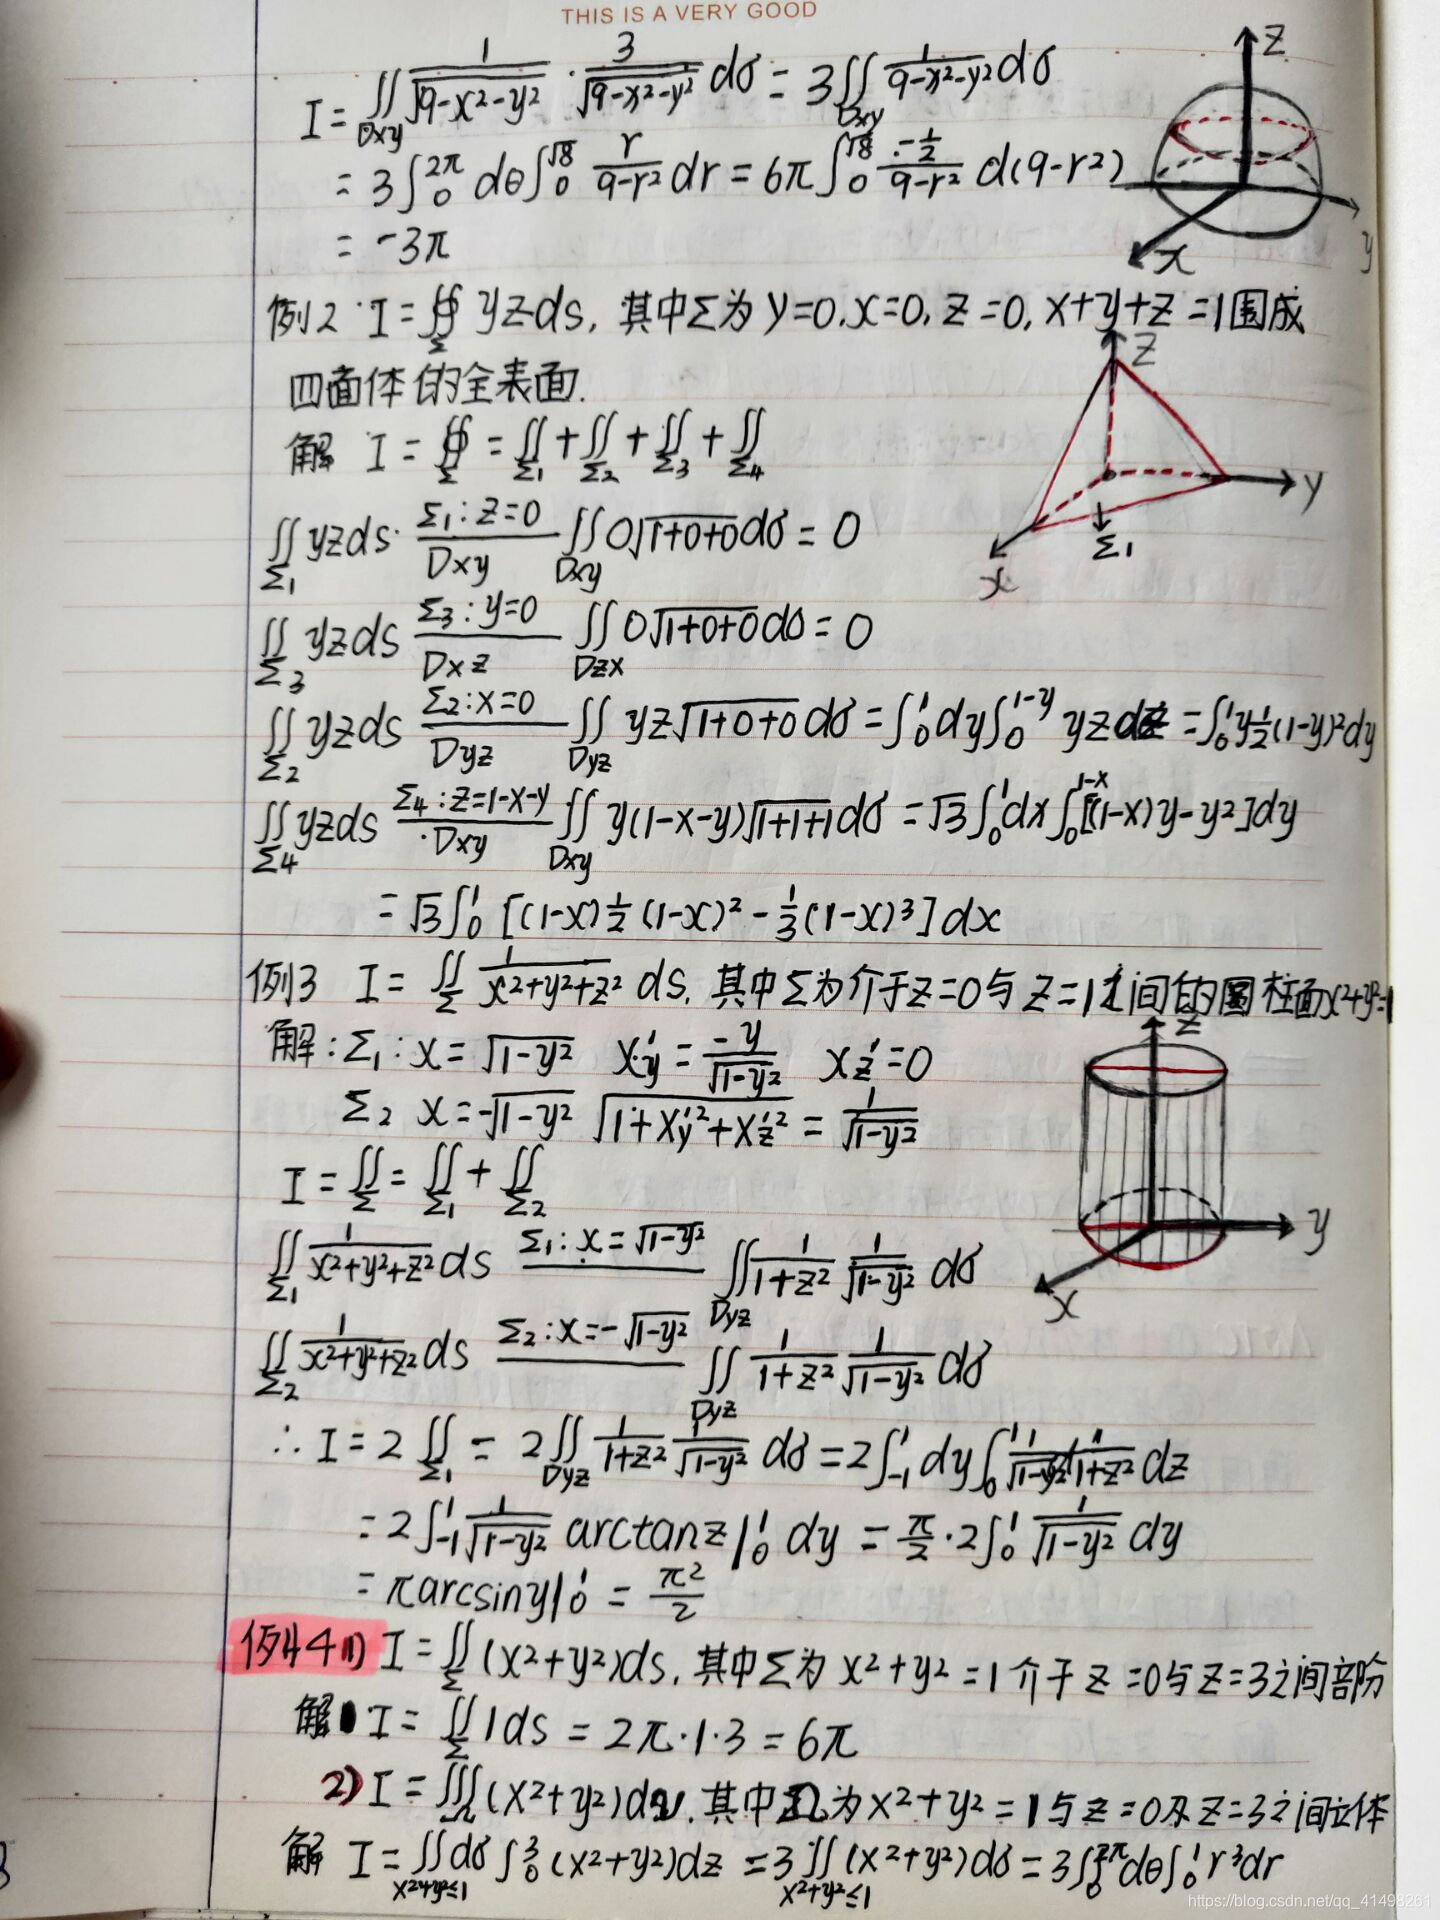 THIS IS A VERY GOOD
I = ∬_{Dxy} 1/√(9-x²-y²) · 3/√(9-x²-y²) dσ = 3∬_{Dxy} 1/(9-x²-y²) dσ
= 3∫₀^{2π} dθ ∫₀^{√8} r/(9-r²) dr = 6π ∫₀^{√8} (-1/2)/(9-r²) d(9-r²)
= -3π
z
x
y
例2 I = ∯_Σ yzds, 其中Σ为 y=0, x=0, z=0, x+y+z=1围成
四面体的全表面.
解 I = ∯_Σ = ∬_{Σ1} + ∬_{Σ2} + ∬_{Σ3} + ∬_{Σ4}
z
y
x
Σ1
∬_{Σ1} yzds Σ1: z=0 / Dxy ∬_{Dxy} 0√(1+0+0) dσ = 0
∬_{Σ3} yzds Σ3: y=0 / Dxz ∬_{Dzx} 0√(1+0+0) dσ = 0
∬_{Σ2} yzds Σ2: x=0 / Dyz ∬_{Dyz} yz√(1+0+0) dσ = ∫₀¹ dy ∫₀^{1-y} yz dz = ∫₀¹ y ½ (1-y)² dy
∬_{Σ4} yzds Σ4: z=1-x-y / Dxy ∬_{Dxy} y(1-x-y)√(1+1+1) dσ = √3 ∫₀¹ dx ∫₀^{1-x} [(1-x)y-y²] dy
= √3 ∫₀¹ [(1-x) ½ (1-x)² - ⅓ (1-x)³] dx
例3 I = ∬_Σ 1/(x²+y²+z²) ds, 其中Σ为介于z=0与z=1之间的圆柱面x²+y²=1
解: Σ1: x = √(1-y²) x'y = -y/√(1-y²) x'z = 0
Σ2 x = -√(1-y²) √(1+x'y²+x'z²) = 1/√(1-y²)
I = ∬_Σ = ∬_{Σ1} + ∬_{Σ2}
z
y
x
∬_{Σ1} 1/(x²+y²+z²) ds Σ1: x=√(1-y²) ∬_{Dyz} 1/(1+z²) 1/√(1-y²) dσ
∬_{Σ2} 1/(x²+y²+z²) ds Σ2: x=-√(1-y²) ∬_{Dyz} 1/(1+z²) 1/√(1-y²) dσ
∴ I = 2∬_{Σ1} = 2∬_{Dyz} 1/(1+z²) 1/√(1-y²) dσ = 2∫₋₁¹ dy ∫₀¹ 1/√(1-y²) 1/(1+z²) dz
= 2∫₋₁¹ 1/√(1-y²) arctanz|₀¹ dy = π/2 · 2∫₀¹ 1/√(1-y²) dy
= πarcsiny|₀¹ = π²/2
例4 1) I = ∬_Σ (x²+y²)ds, 其中Σ为 x²+y²=1 介于z=0与z=3之间部分
解 I = ∬_Σ 1ds = 2π·1·3 = 6π
2) I = ∭_Ω (x²+y²)dv, 其中Ω为x²+y²=1与z=0及z=3之间立体
解 I = ∬_{x²+y²≤1} dσ ∫₀³ (x²+y²)dz = 3∬_{x²+y²≤1} (x²+y²)dσ = 3∫₀^{2π} dθ ∫₀¹ r³dr
https://blog.csdn.net/qq_41498261